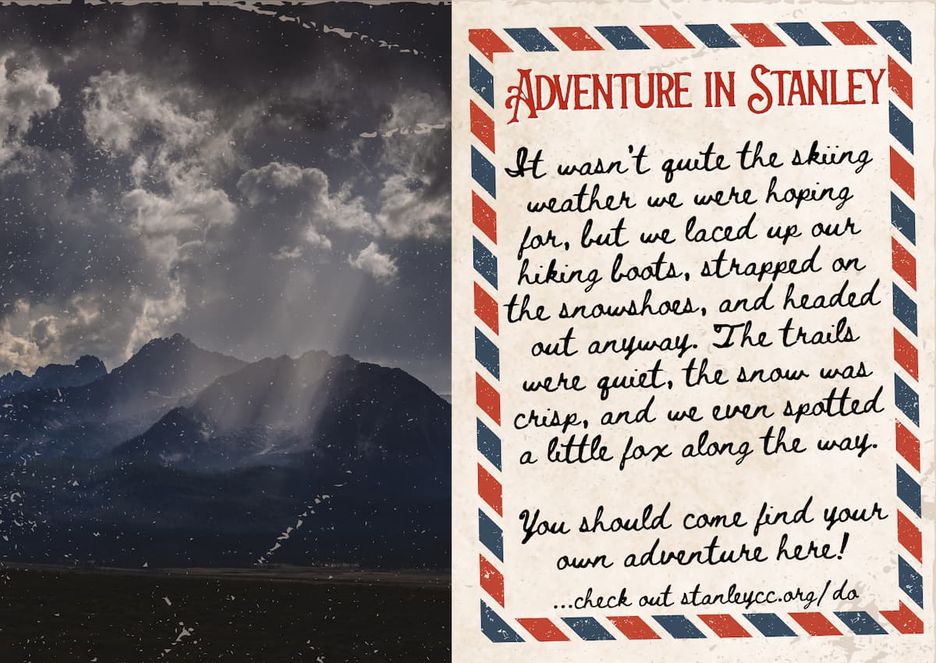 Adventure in Stanley
It wasn't quite the skiing
weather we were hoping
for, but we laced up our
hiking boots, strapped on
the snowshoes, and headed
out anyway. The trails
were quiet, the snow was
crisp, and we even spotted
a little fox along the way.
You should come find your
own adventure here!
...check out stanleycc.org/do